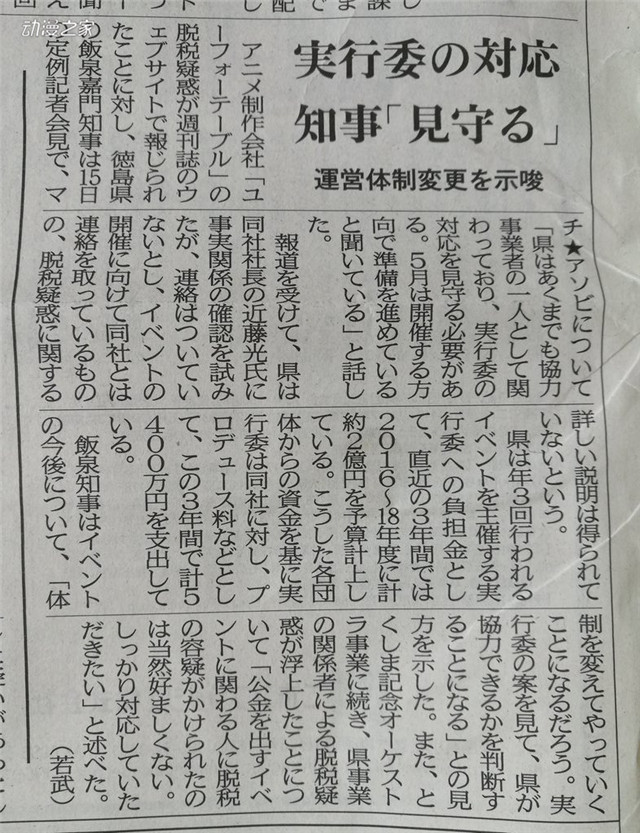 动漫之家
実行委の対応
知事「見守る」
運営体制変更を示唆
アニメ制作会社「ユ
ーフォーテーブル」の
脱税疑惑が週刊誌のウ
ェブサイトで報じられ
たことに対し、徳島県
の飯泉嘉門知事は15日
の定例記者会見で、マ
チ★アソビについて
「県はあくまでも協力
事業者の一人として関
わっており、実行委の
対応を見守る必要があ
る。5月は開催する方
向で準備を進めている
と聞いている」と話し
た。
報道を受けて、県は
同社社長の近藤光氏に
事実関係の確認を試み
たが、連絡はついてい
ないとし、イベントの
開催に向けて同社とは
連絡を取っているもの
の、脱税疑惑に関する
詳しい説明は得られて
いないという。
県は年3回行われる
イベントを主催する実
行委への負担金とし
て、直近の3年間では
2016〜18年度に計
約2億円を予算計上し
ている。こうした各団
体からの資金を基に実
行委は同社に対し、プ
ロデュース料などとし
て、この3年間で計5
400万円を支出して
いる。
飯泉知事はイベント
の今後について、「体
制を変えてやっていく
ことになるだろう。実
行委の案を見て、県が
協力できるかを判断す
ることになる」との見
方を示した。また、と
くしま記念オーケスト
ラ事業に続き、県事業
の関係者による脱税疑
惑が浮上したことにつ
いて「公金を出すイベ
ントに関わる人に脱税
の容疑がかけられたの
は当然好ましくない。
しっかり対応していた
だきたい」と述べた。
（若武）